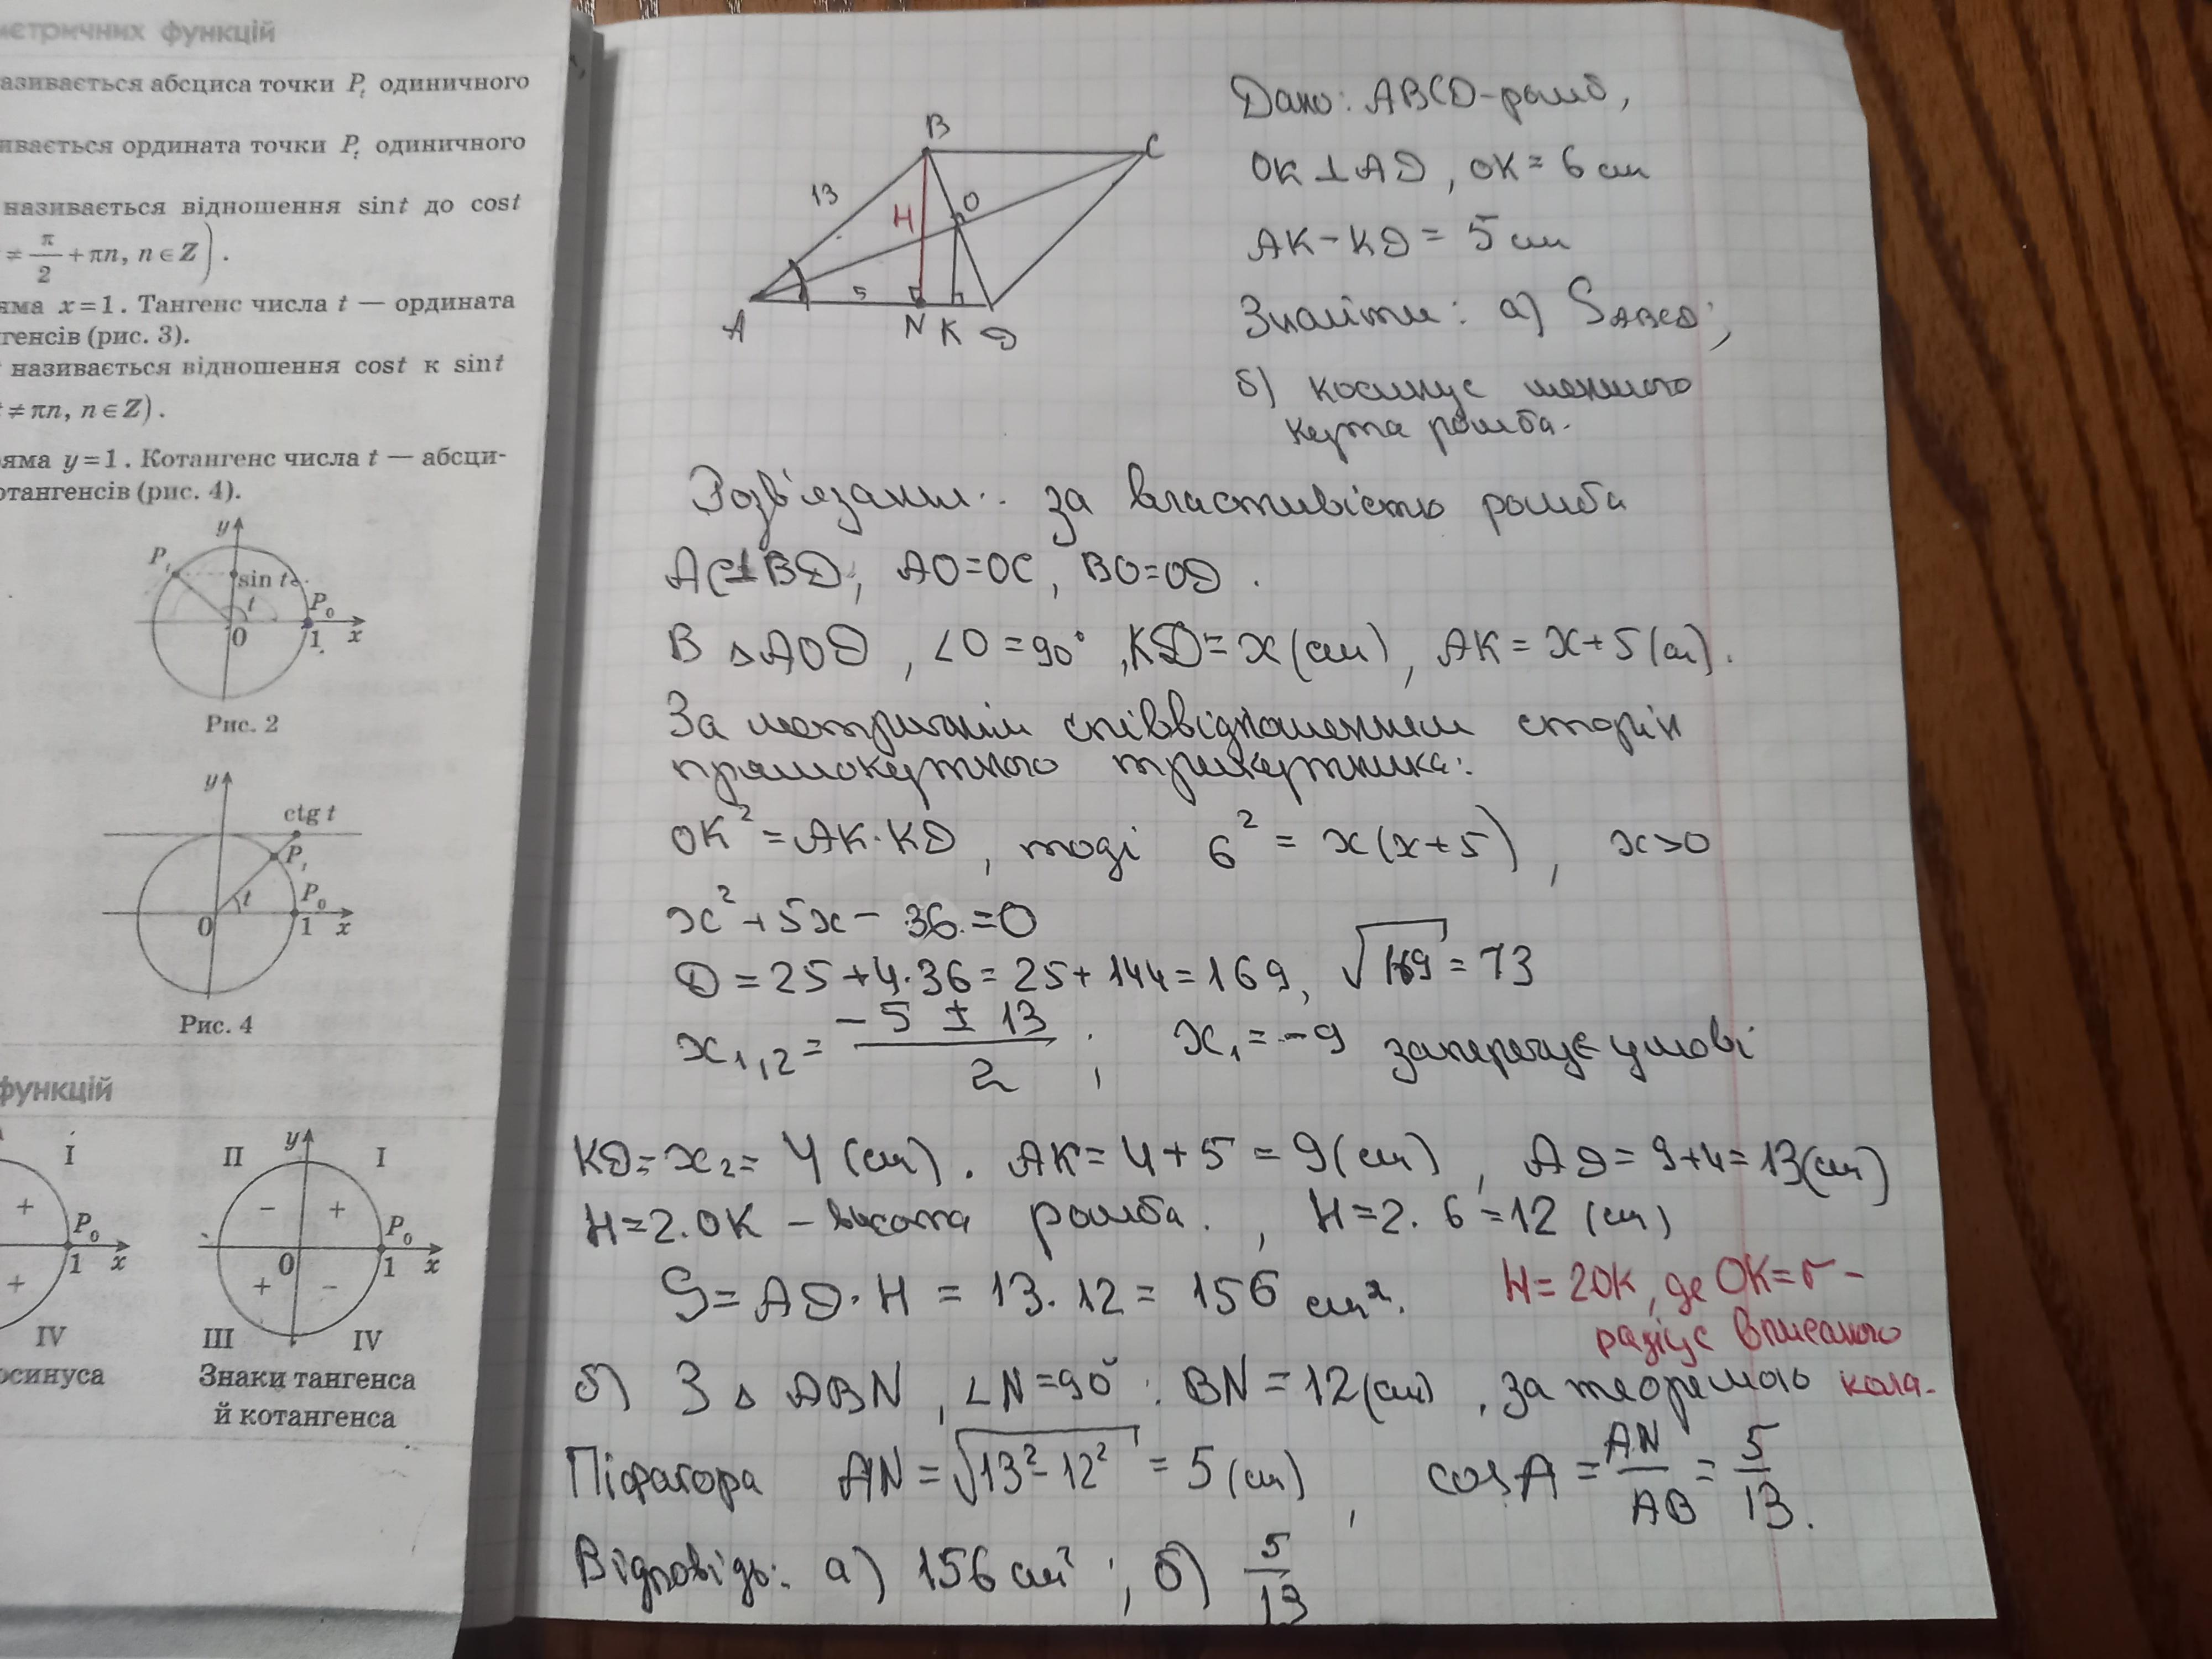 метричних функцій
азивається абсциса точки Pt одиничного
ивається ордината точки Pt одиничного
називається відношення sint до cost
≠ π/2 + πn, n ∈ Z).
яма x=1. Тангенс числа t — ордината
генсів (рис. 3).
називається відношення cost к sint
t ≠ πn, n ∈ Z).
яма y=1. Котангенс числа t — абсци-
отангенсів (рис. 4).
y
Pt
sin t
t
P0
0
1
x
Рис. 2
y
ctg t
Pt
t
P0
0
1
x
Рис. 4
функцій
I
+
P0
1
x
+
IV
осинуса
y
II
I
−
+
P0
0
1
x
+
−
III
IV
Знаки тангенса
й котангенса
B
C
13
H
O
5
A
N
K
D
Дано: ABCD-ромб,
OK⊥AD, OK = 6 см
AK-KD = 5 см
Знайти: а) SABCD;
б) косинус меншого
кута ромба.
Розв'язання: за властивістю ромба
AC⊥BD, AO=OC, BO=OD.
В △AOD, ∠O=90°, KD=x(см), AK=x+5(см).
За метричним співвідношенням сторін
прямокутного трикутника:
OK² = AK·KD, тоді 6² = x(x+5), x>0
x²+5x-36=0
D = 25+4·36=25+144=169, √169 = 13
x1,2 = (-5 ± 13)/2; x1 = -9 заперечує умові
KD=x2=4(см). AK=4+5=9(см), AD=9+4=13(см)
H=2·OK – висота ромба., H=2·6=12(см)
S=AD·H=13·12=156 см².
H=2OK, де OK=r-
радіус вписаного
кола.
б) З △ABN, ∠N=90°: BN=12(см), за теоремою
Піфагора AN=√13²-12² = 5(см), cosA = AN/AB = 5/13.
Відповідь: а) 156 см²; б) 5/13